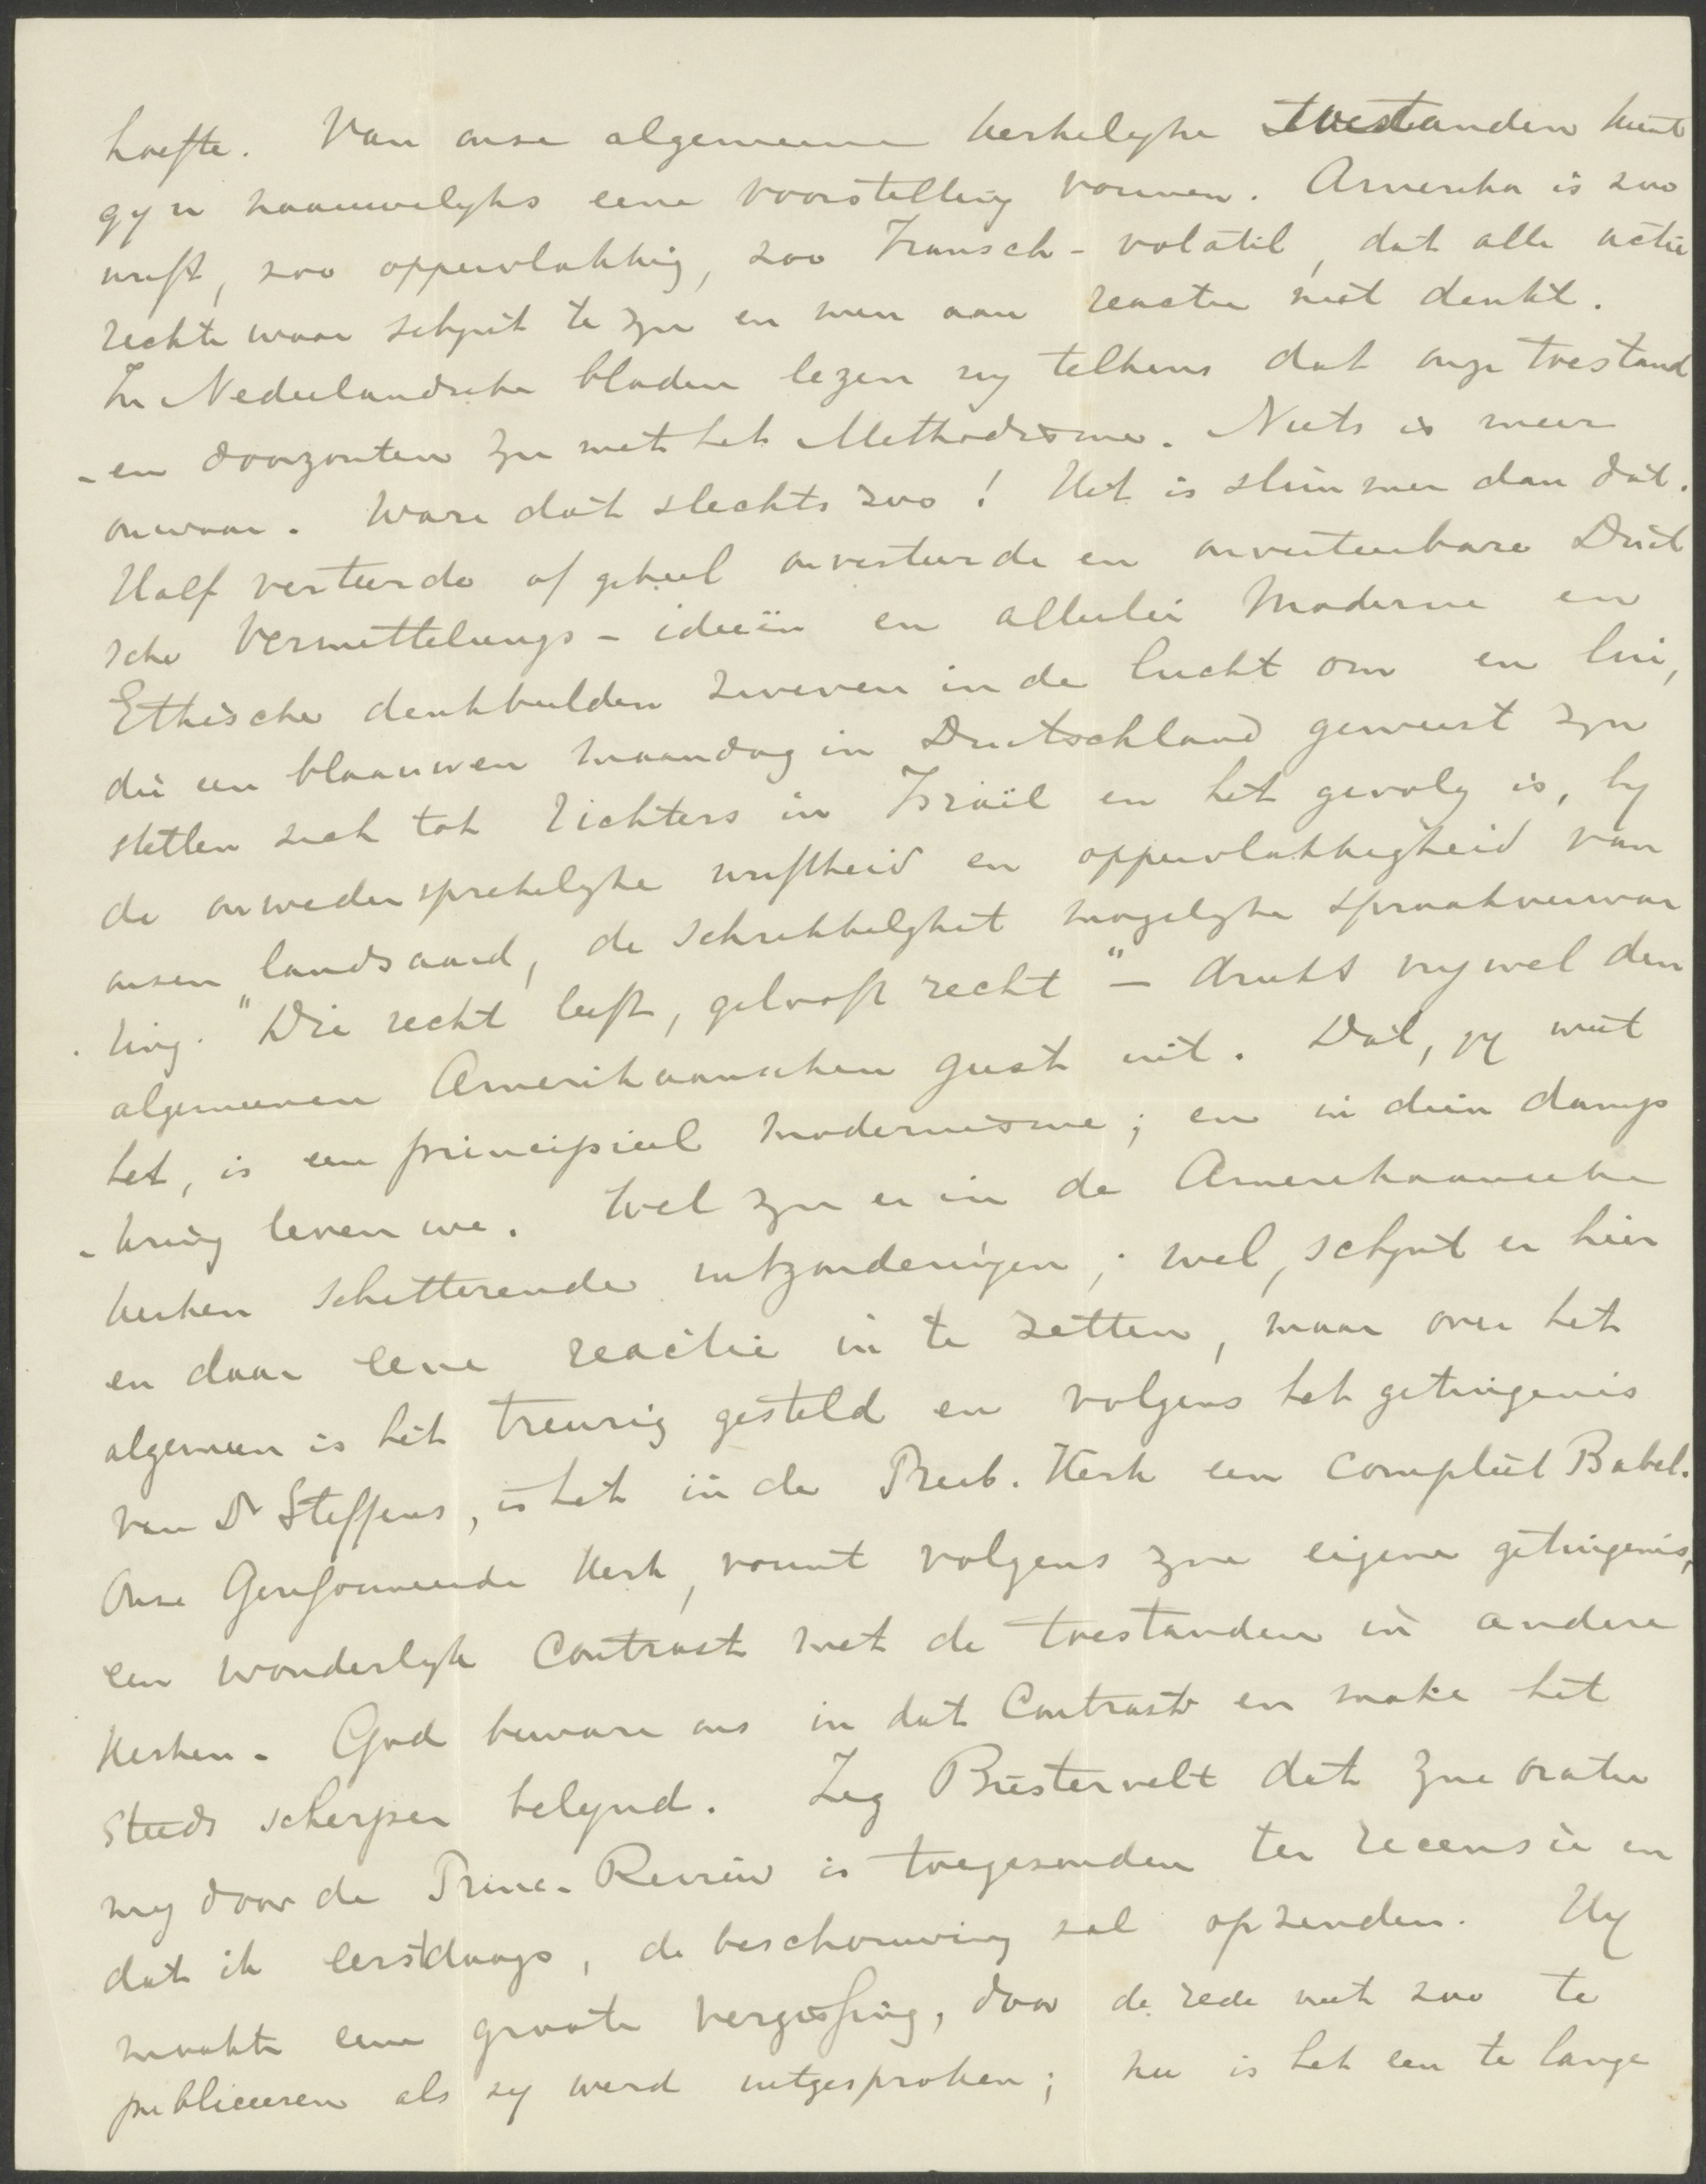 hoefte. Van onze algemeene kerkelyke toestanden kunt
gy u naauwelyks eene voorstelling vormen. Amerika is zoo
wuft, zoo oppervlakkig, zoo Fransch-volatil, dat alle actie
rechte waar schynt te zyn en men aan reactie niet denkt.
In Nederlandsche bladen lezen wy telkens dat onze toestand
-en doorzouten zyn met het Methodisme. Niets is meer
onwaar. Ware dat slechts zoo! Het is slimmer dan dat.
Half verteerde of geheel onverteerde en onverteerbare Duit
sche Vermittelungs-ideeën en allerlei Moderne en
Ethische denkbeelden zweven in de lucht om en lui,
die een blaauwen maandag in Duitschland geweest zyn
stellen zich tot Richters in Israël en het gevolg is, by
de onwedersprekelyke wuftheid en oppervlakkigheid van
onzen landsaard, de schrikkelykst mogelyke spraakverwar
ring. "Die recht leeft, gelooft recht" — drukt vrywel den
algemeenen Amerikaanschen geest uit. Dat, gy weet
het, is een principieel modernisme; en in dien damp
-kring leven we. Wel zyn er in de Amerikaansche
kerken schitterende uitzonderingen; wel, schynt er hier
en daar eene reactie in te zetten, maar over het
algemeen is het treurig gesteld en volgens het getuigenis
van Dr Steffens, is het in de Presb. Kerk een compleet Babel.
Onze Gereformeerde Kerk, vormt volgens zyne eigene getuigenis,
een wonderlyk contrast met de toestanden in andere
kerken. God beware ons in dat contrast en make het
steeds scherper belynd. Zeg Biesterveld dat zyne oratie
my door de Princ. Review is toegezonden ter recensie en
dat ik eerstdaags, de beschouwing zal opzenden. Hy
maakte eene groote vergissing, door de rede niet zoo te
publiceeren als zy werd uitgesproken; nu is het een te lange